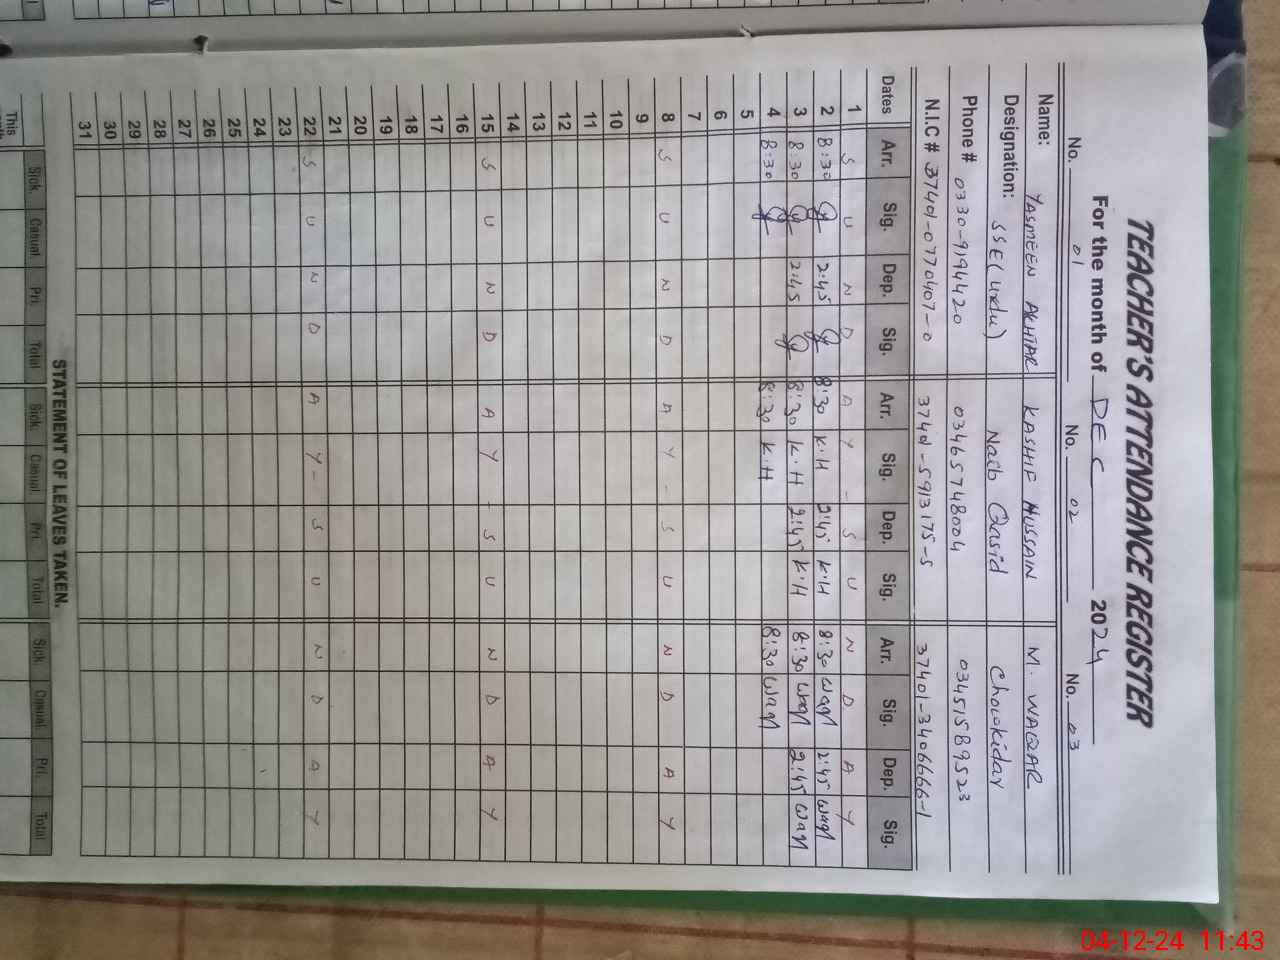 TEACHER'S ATTENDANCE REGISTER
For the month of DEC 2024
No. 01 No. 02 No. 03
Name: YASMEEN AKHTAR KASHIF HUSSAIN M. WAQAR
Designation: SSE (urdu) Naib Qasid Chowkidar
Phone # 0330-9194420 03465748004 03451589523
N.I.C # 37401-0770407-0 3740-5913175-5 37401-3406666-1
Dates Arr. Sig. Dep. Sig. Arr. Sig. Dep. Sig. Arr. Sig. Dep. Sig.
1 S U N D A Y - S U N D A Y
2 8:30 2:45 8:30 K.H 2:45 K.H 8:30 waqr 2:45 waqr
3 8:30 2:45 8:30 K.H 2:45 K.H 8:30 waqr 2:45 waqr
4 8:30 8:30 K.H 8:30 waqr
5
6
7
8 S U N D A Y - S U N D A Y
9
10
11
12
13
14
15 S U N D A Y - S U N D A Y
16
17
18
19
20
21
22 S U N D A Y - S U N D A Y
23
24
25
26
27
28
29
30
31
STATEMENT OF LEAVES TAKEN.
Sick. Casual Pri. Total Sick. Casual Pri. Total Sick. Casual Pri. Total
This
04-12-24 11:43